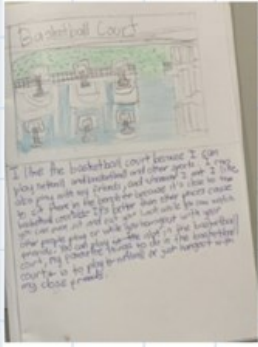 Basketball Court
I like the basketball court because I can
play netball and basketball and other sports. I can
also play with my friends, and whenever I eat I like
to sit there in the because it's close to the
basketball court. It's better than other places cause
you can even sit and eat your lunch while you watch
other people play or while you hangout with your
friends. You can play on the in the basketball
court, my favourite things to do in the basketball
court is to play or just hangout with
my close friends.